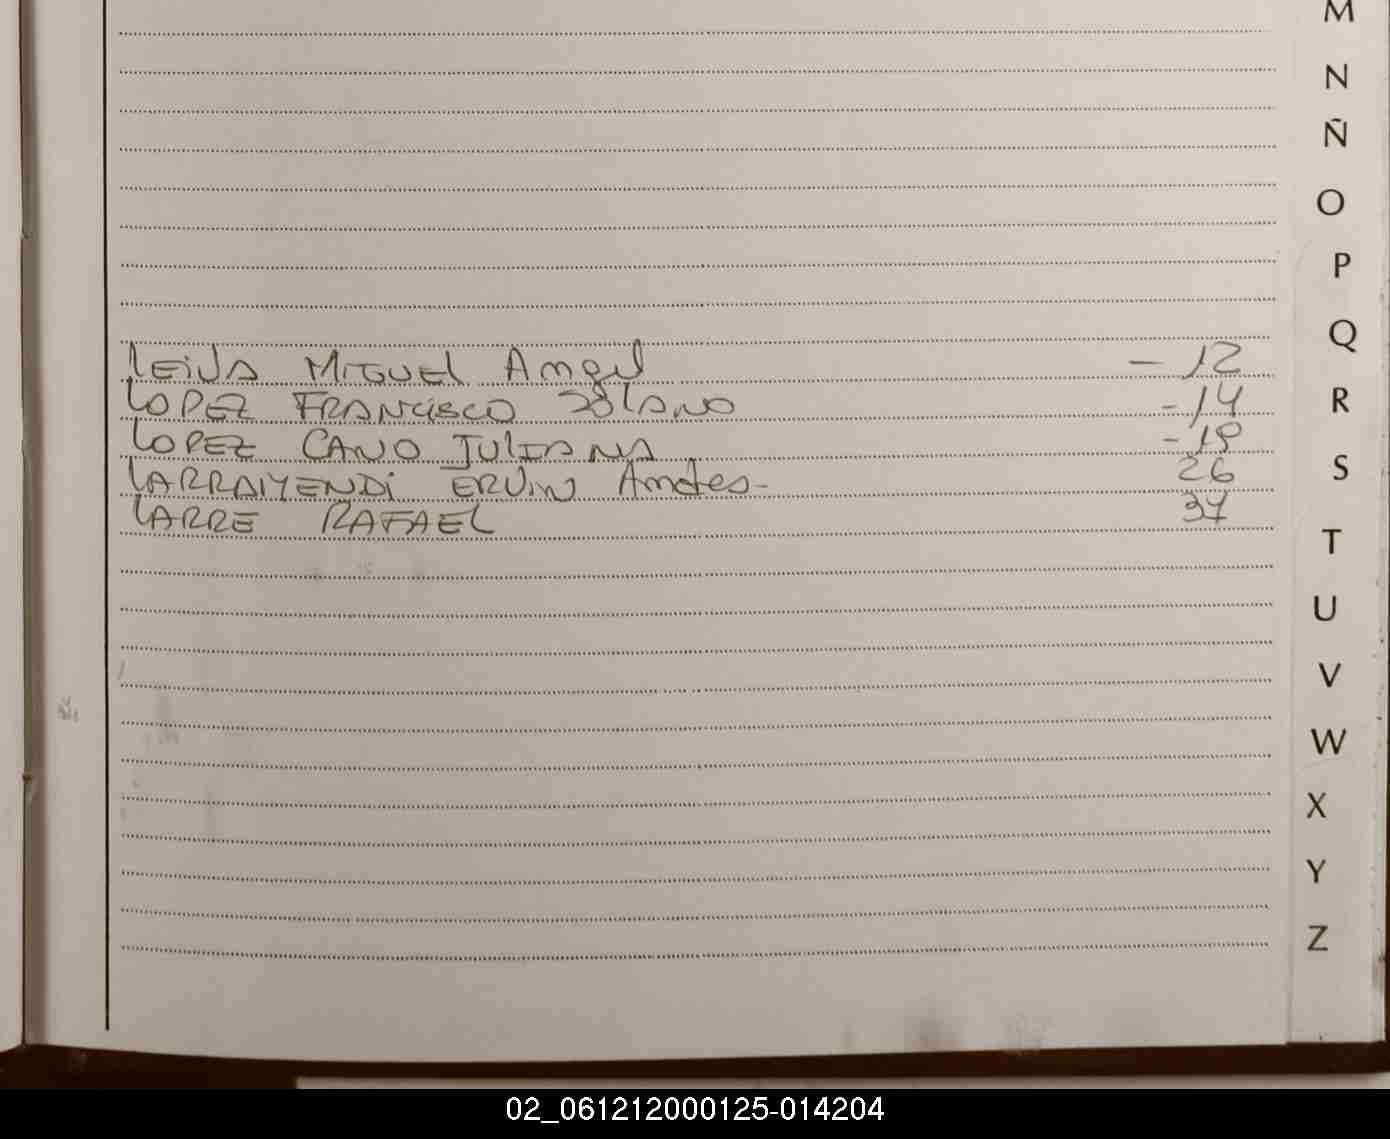 LEIVA MIGUEL Angel - 12
LOPEZ FRANCISCO SOLANO - 14
LOPEZ CANO JULIANA - 19
LARRAMENDI ERVIN Andres- 26
LARRE RAFAEL 37
M
N
Ñ
O
P
Q
R
S
T
U
V
W
X
Y
Z
02_061212000125-014204